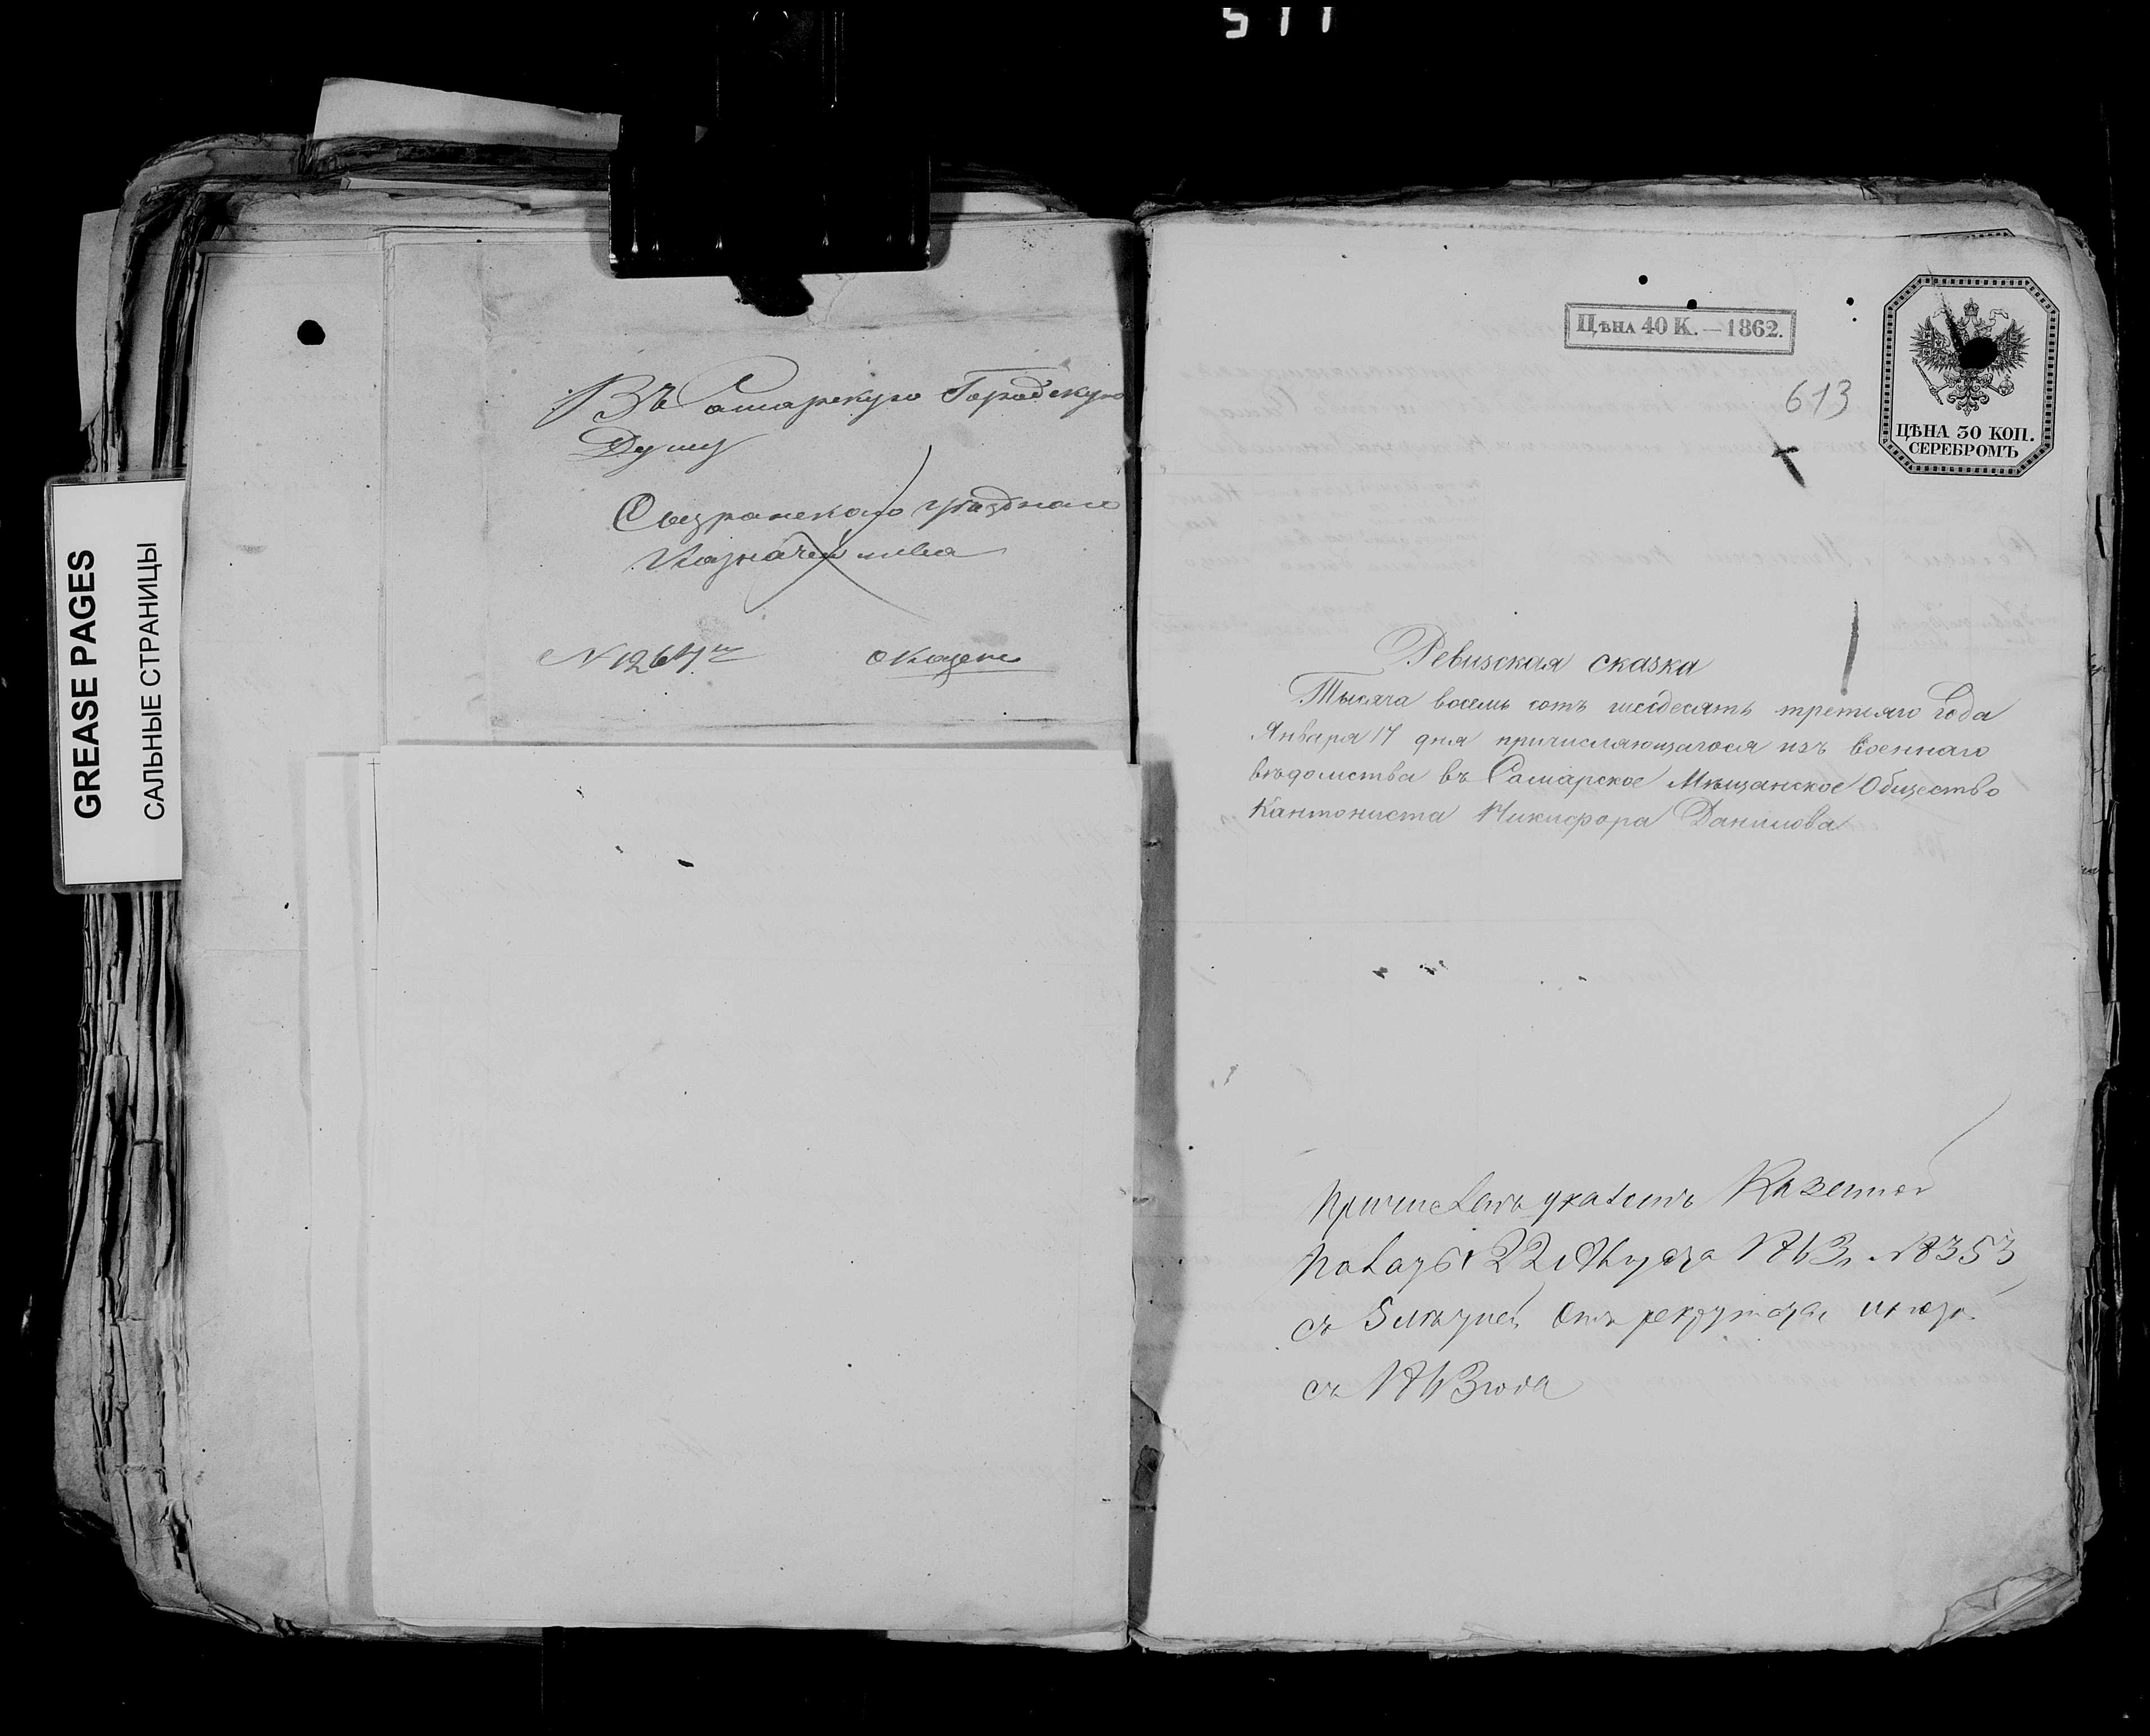 GREASE PAGES
САЛЬНЫЕ СТРАНИЦЫ
Въ Самарскую Городскую
Думу
Сызранскаго уѣзднаго
Казначейства
О Казен
Цѣна 40 К. — 1862.
613
ЦѢНА 30 КОП.
СЕРЕБРОМЪ
Ревизская сказка
Тысяча восемь сотъ шесдесятъ третьяго Года
Января 17 дня причисляющагося изъ военнаго
вѣдомства въ Самарское Мѣщанское Общество
Кантониста Никифора Данилова
Причисленъ указомъ Казенной
Палаты 22 1863 № 8353
съ льготой отъ рекрутства
съ 1863 года